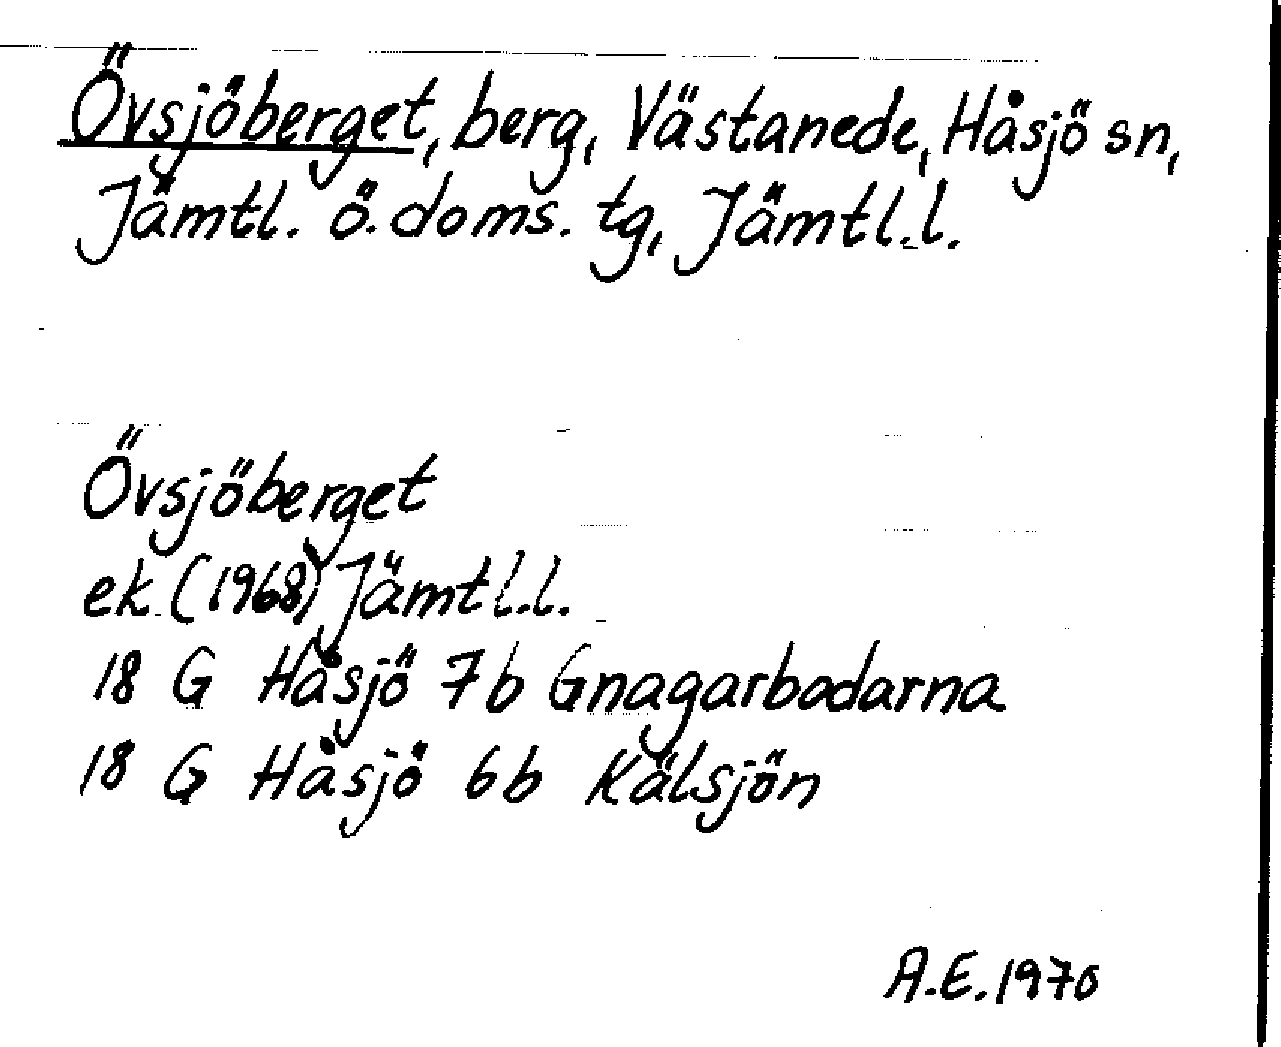 Övsjöberget, berg, Västanede, Håsjö sn,
Jämtl. ö. doms. tg, Jämtl.l.
Övsjöberget
ek. (1968) Jämtl.l.
18 G Håsjö 7b Gnagarbodarna
18 G Håsjö 6b Kälsjön
A.E. 1970